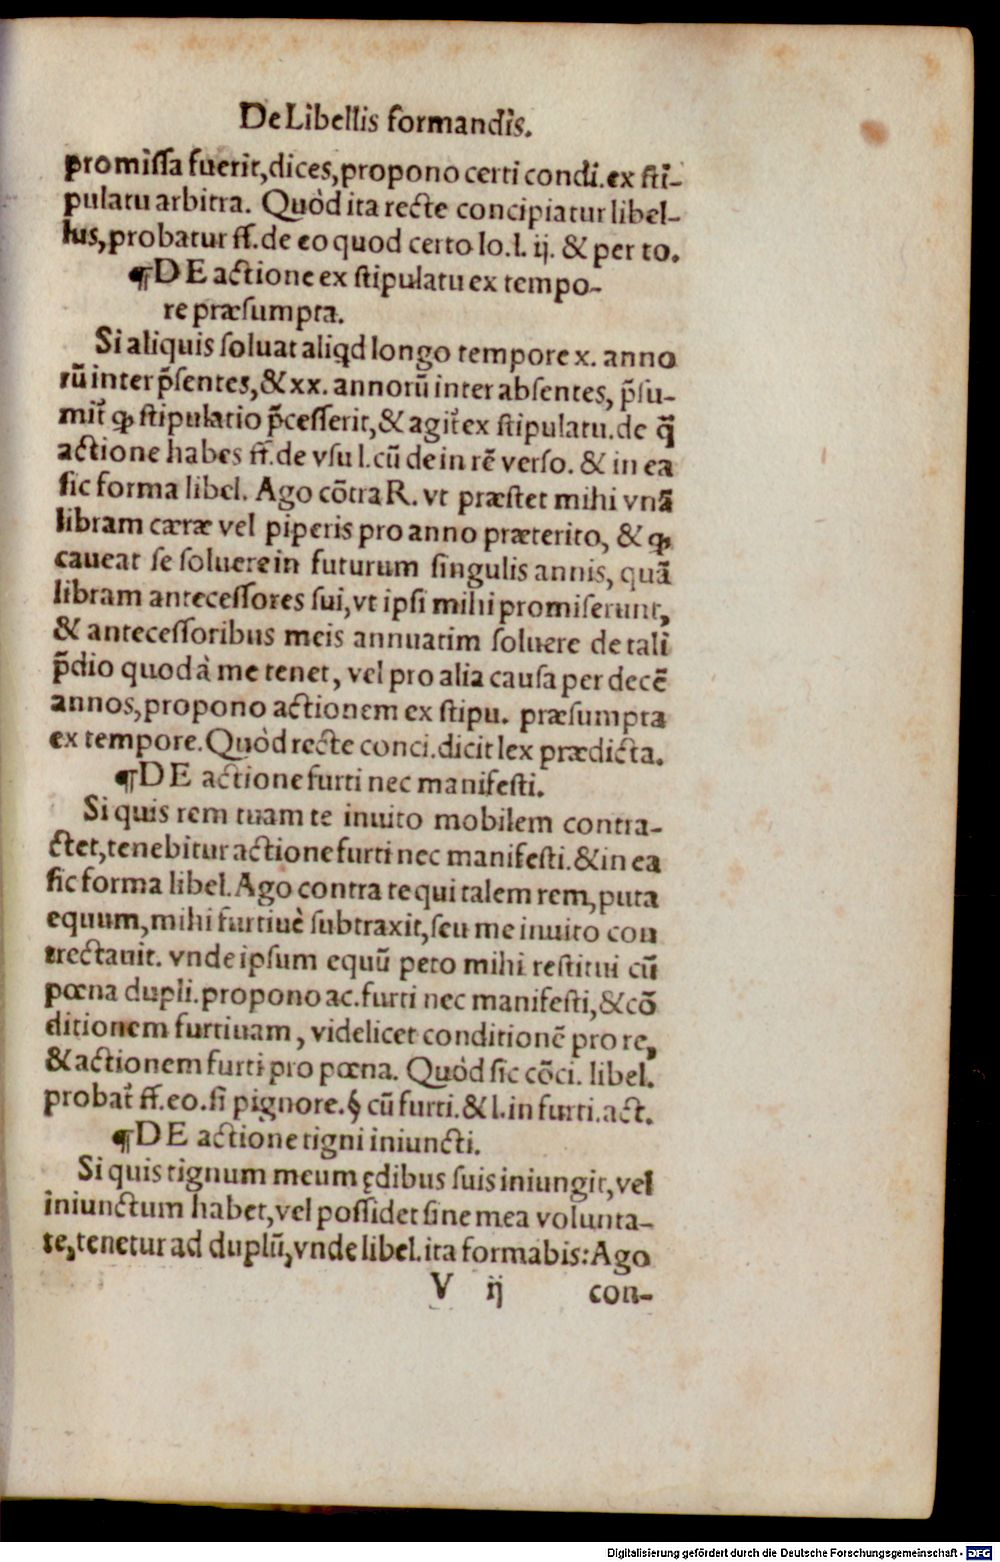 De Libellis formandis.
promissa fuerit, dices, propono certi condi. ex sti-
pulatu arbitra. Quòd ita recte concipiatur libel-
lus, probatur ff. de eo quod certo lo. l. ij. & per to.
¶DE actione ex stipulatu ex tempo-
re præsumpta.
Si aliquis soluat aliqd longo tempore x. anno
rũ inter p̃sentes, & xx. annorũ inter absentes, p̃su-
mit̃ ꝙ stipulatio p̃cesserit, & agit̃ ex stipulatu. de q̃
actione habes ff. de vsu l. cũ de in rẽ verso. & in ea
sic forma libel. Ago cõtra R. vt præstet mihi vnã
libram cæræ vel piperis pro anno præterito, & ꝙ
caueat se soluere in futurum singulis annis, quã
libram antecessores sui, vt ipsi mihi promiserunt,
& antecessoribus meis annuatim soluere de tali
p̃dio quod à me tenet, vel pro alia causa per decẽ
annos, propono actionem ex stipu. præsumpta
ex tempore. Quòd recte conci. dicit lex prædicta.
¶DE actione furti nec manifesti.
Si quis rem tuam te inuito mobilem contra-
ctet, tenebitur actione furti nec manifesti. & in ea
sic forma libel. Ago contra te qui talem rem, puta
equum, mihi furtiuè subtraxit, seu me inuito con
trectauit. vnde ipsum equũ peto mihi restitui cũ
pœna dupli. propono ac. furti nec manifesti, & cõ
ditionem furtiuam, videlicet conditionẽ pro re,
& actionem furti pro pœna. Quòd sic cõci. libel.
probat̃ ff. eo. si pignore. § cũ furti. & l. in furti. act.
¶DE actione tigni iniuncti.
Si quis tignum meum ędibus suis iniungit, vel
iniunctum habet, vel possidet sine mea volunta-
te, tenetur ad duplũ, vnde libel. ita formabis: Ago
V ij con-
Digitalisierung gefördert durch die Deutsche Forschungsgemeinschaft - DFG